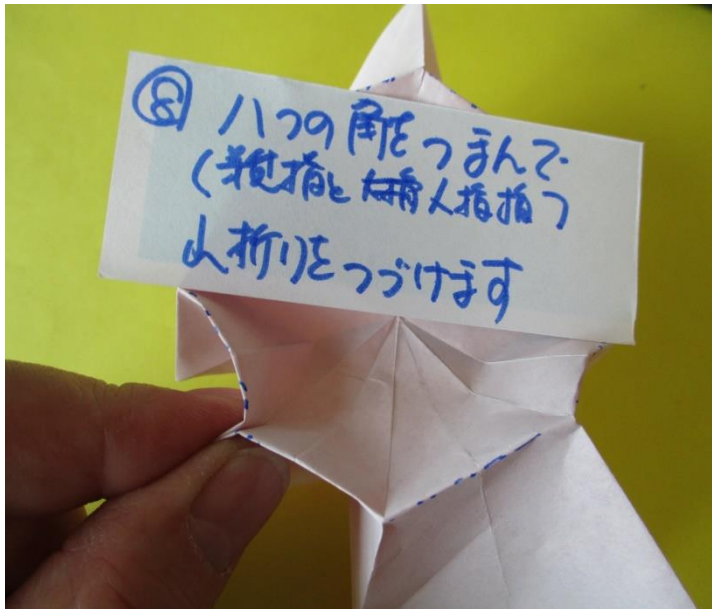 ⑧ 八つの角をつまんで
(親指と 人指指)
山折りをつづけます